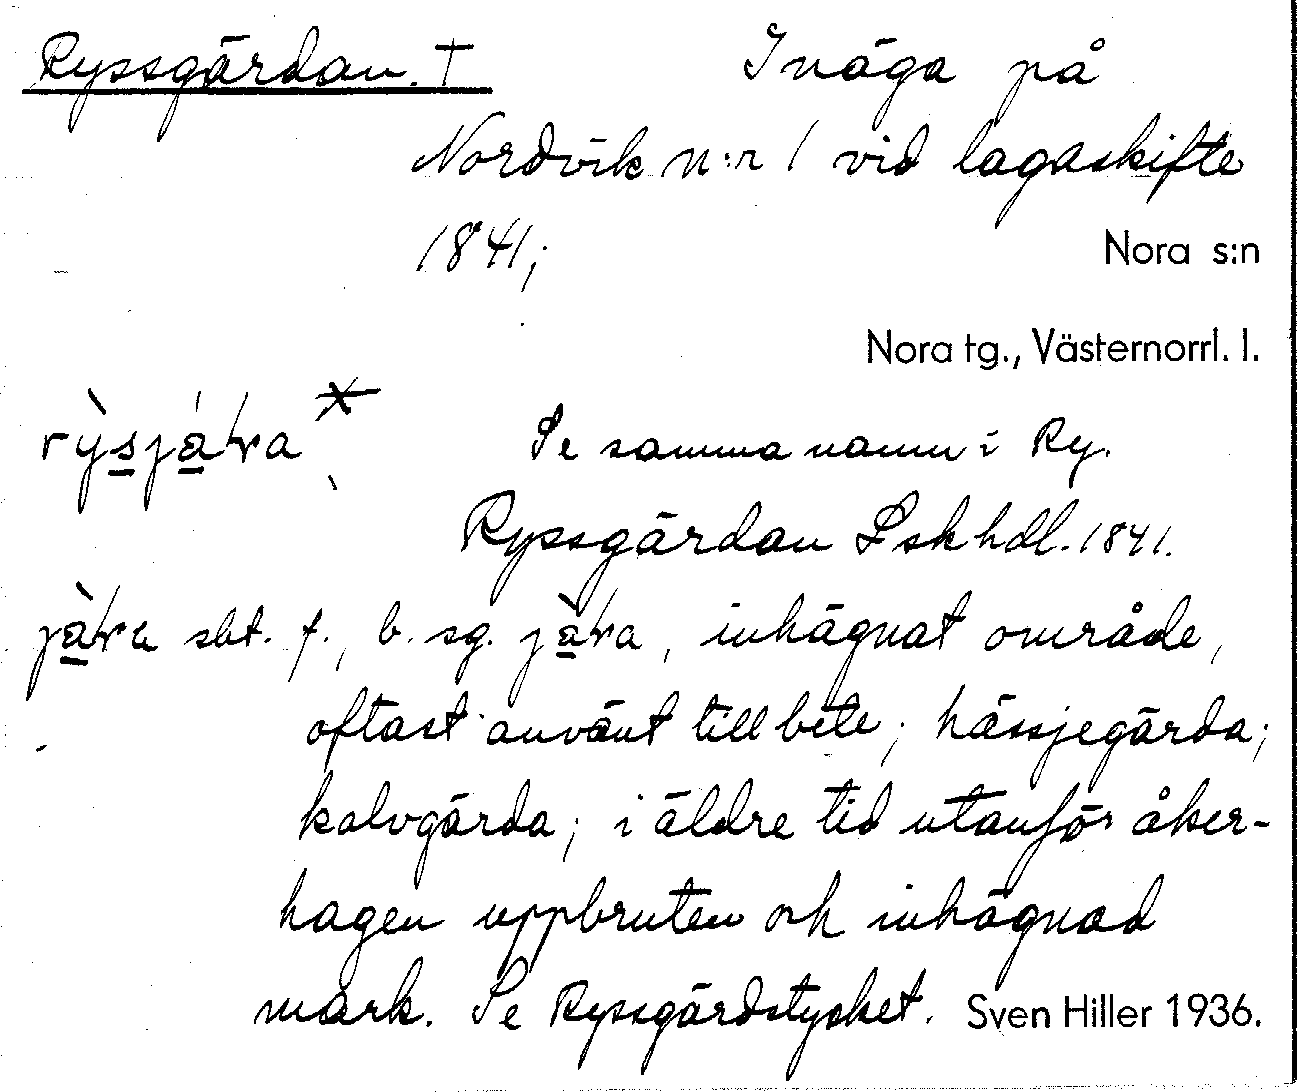 Ryssgärdan. †
Inäga på
Nordvik n:r 1 vid lagaskifte
1841;
Nora s:n
Nora tg., Västernorrl. l.
Se samma namn i Ry.
Ryssgärdan Lskhdl. 1841.
sbt. f., b. sg. inhägnat område,
oftast använt till bete; hässjegärda;
kalvgärda; i äldre tid utanför åker-
hagen uppbruten och inhägnad
mark. Se Ryssgärdstycket. Sven Hiller 1936.